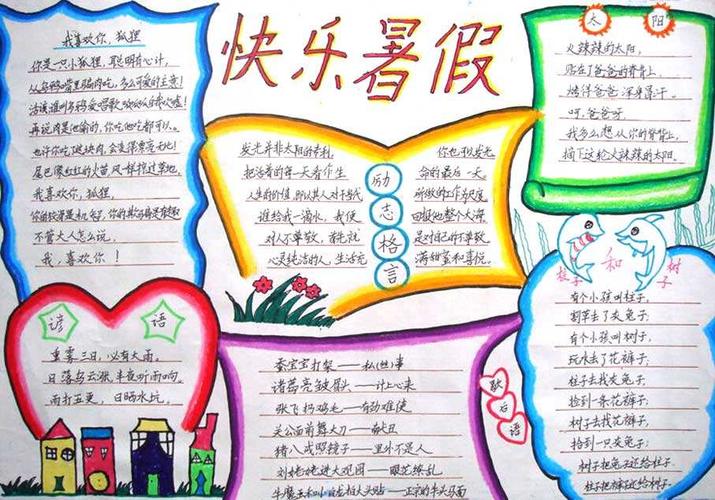 快乐暑假
我喜欢你，狐狸
你是一只小狐狸，聪明有心计，
从乌鸦嘴里骗肉吃，多么可爱的主意！
活该谁叫乌鸦爱唱歌
再说肉是他偷的，你吃他吃都可以。
也许你吃了这块肉，会变得漂亮无比！
尾巴像红红的火苗，风一样掠过草地。
我喜欢你，狐狸
你的狡猾是机智，你的欺骗是有趣
不管大人怎么说，
我，喜欢你！
太阳
火辣辣的太阳，
贴在了爸爸的背脊上，
烤得爸爸浑身冒汗。
呵，爸爸呀
我多么想从你的脊背上，
摘下这轮火辣辣的太阳。
励志格言
发光并非太阳的专利，你也可以发光
把活着的每一天看作生命的最后一天。
人生的价值，所以其人对于当代所做的工作为尺度
谁给我一滴水，我便回报他整个大海
对人不尊敬，首先就是对自己的不尊敬
心灵纯洁的人，生活充满甜蜜和喜悦。
谚语
重雾三日，必有大雨。
日落乌云涨，半夜听雨响。
雨打五更，日晒水坑。
歇后语
蚕宝宝打架——私(丝)事
诸葛亮皱眉头——计上心来
张飞扔鸡毛——有劲难使
关公面前舞大刀——献丑
猪八戒照镜子——里外不是人
刘姥姥进大观园——眼花缭乱
柱子和树子
有个小孩叫柱子，
割草去了灰兔子；
有个小孩叫树子，
玩水去了花裤子；
柱子去找灰兔子，
捡到一条花裤子；
树子去找花裤子，
拾到一只灰兔子；
树子把兔子还给柱子，
柱子把裤子还给树子。